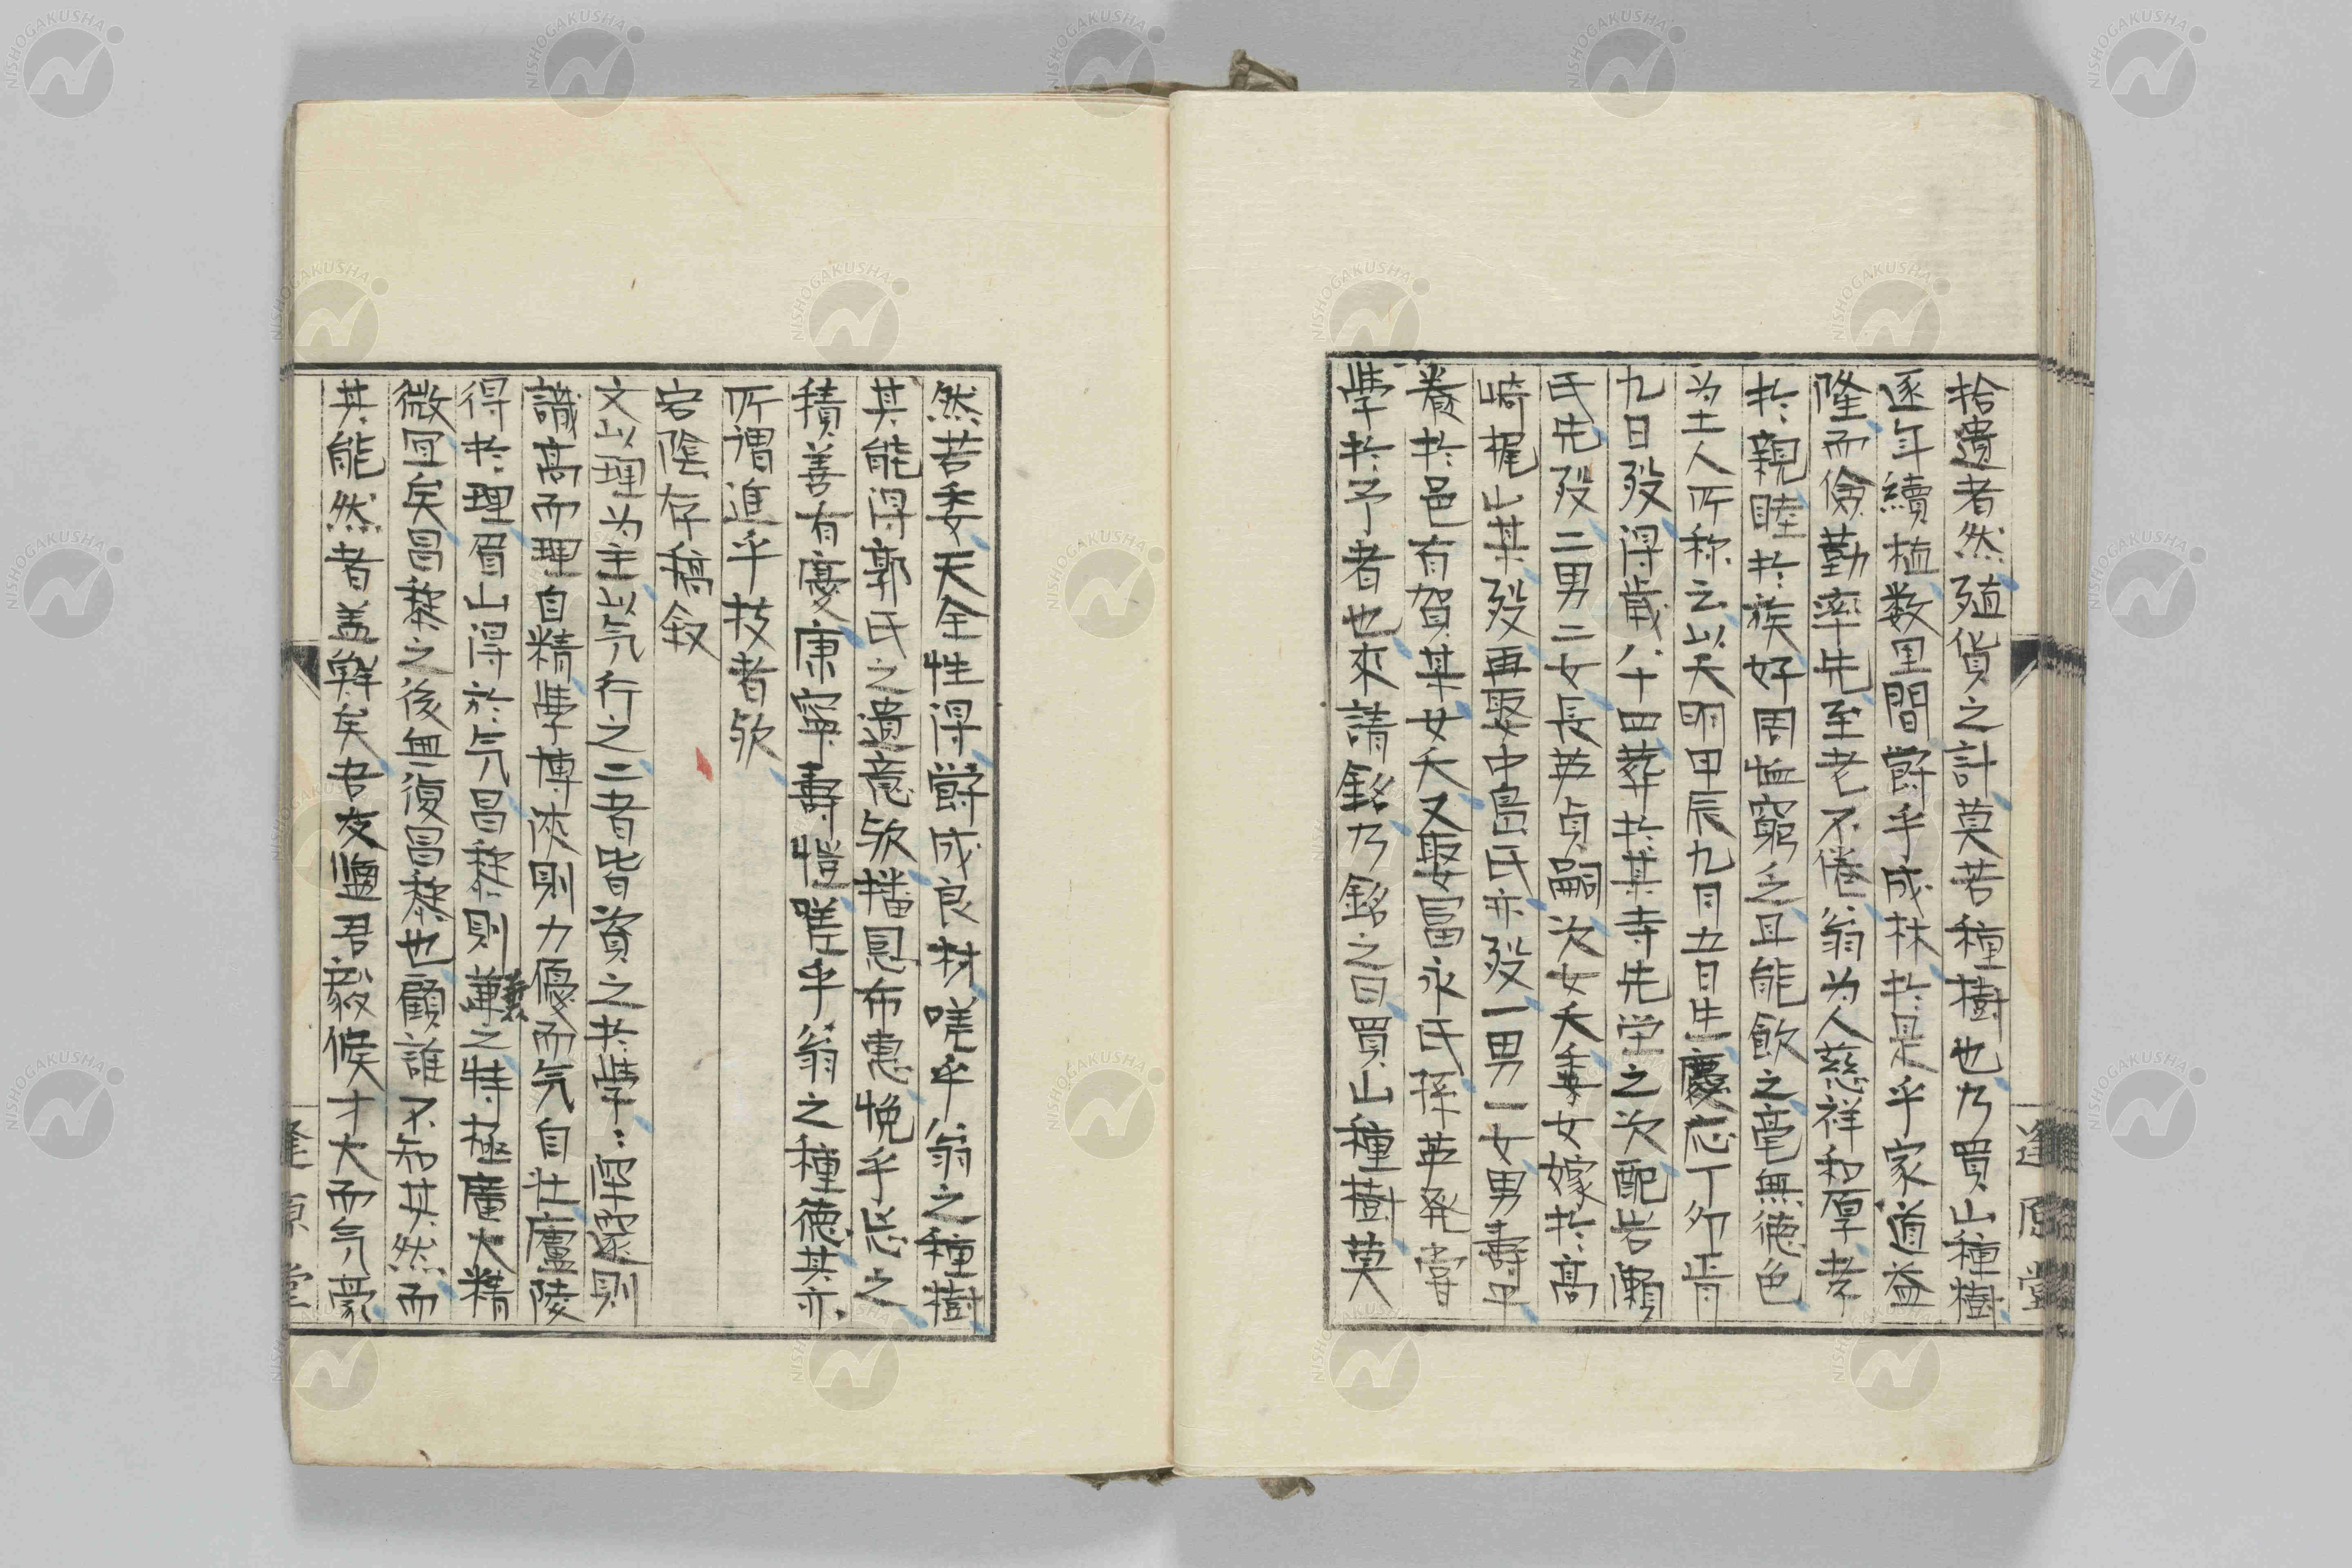 拾遺者然殖貨之計莫若種樹也乃買山種樹
逐年續植数里間欝乎成林於是乎家道益
隆而儉勤率先至老不倦翁為人慈祥和厚孝
於親睦於族好周恤窮乏且能飲之毫無徳色
為土人所称云以天明甲辰九月五日生慶応丁卯
九日歿得歳八十四葬於某寺先塋之次配岩瀬
氏先歿二男二女長英貞嗣次女夭季女嫁於高
崎梶山某歿再娶中島氏亦歿一男一女男壽平
養於邑有賀某女夭又娶冨永氏孫英発嘗
學於予者也來請銘乃銘之曰買山種樹莫
逢原堂
然若委天全性得欝成良材嗟乎翁之種樹
其能得郭氏之遺意欤播恩布恵悗乎忘之
積善有慶康寧壽愷嗟乎翁之種徳其亦
所謂進乎技者欤
宕陰存稿敘
文以理為主以気行之二者皆資之於學〻深邃則
識高而理自精學博洽則力優而気自壮廬陵
得於理眉山得於气昌黎則兼之特極廣大精
微宜矣昌黎之後無復昌黎也顧誰不知其然而
其能然者盖鮮矣吾友鹽君毅候才大而气豪
逢原堂